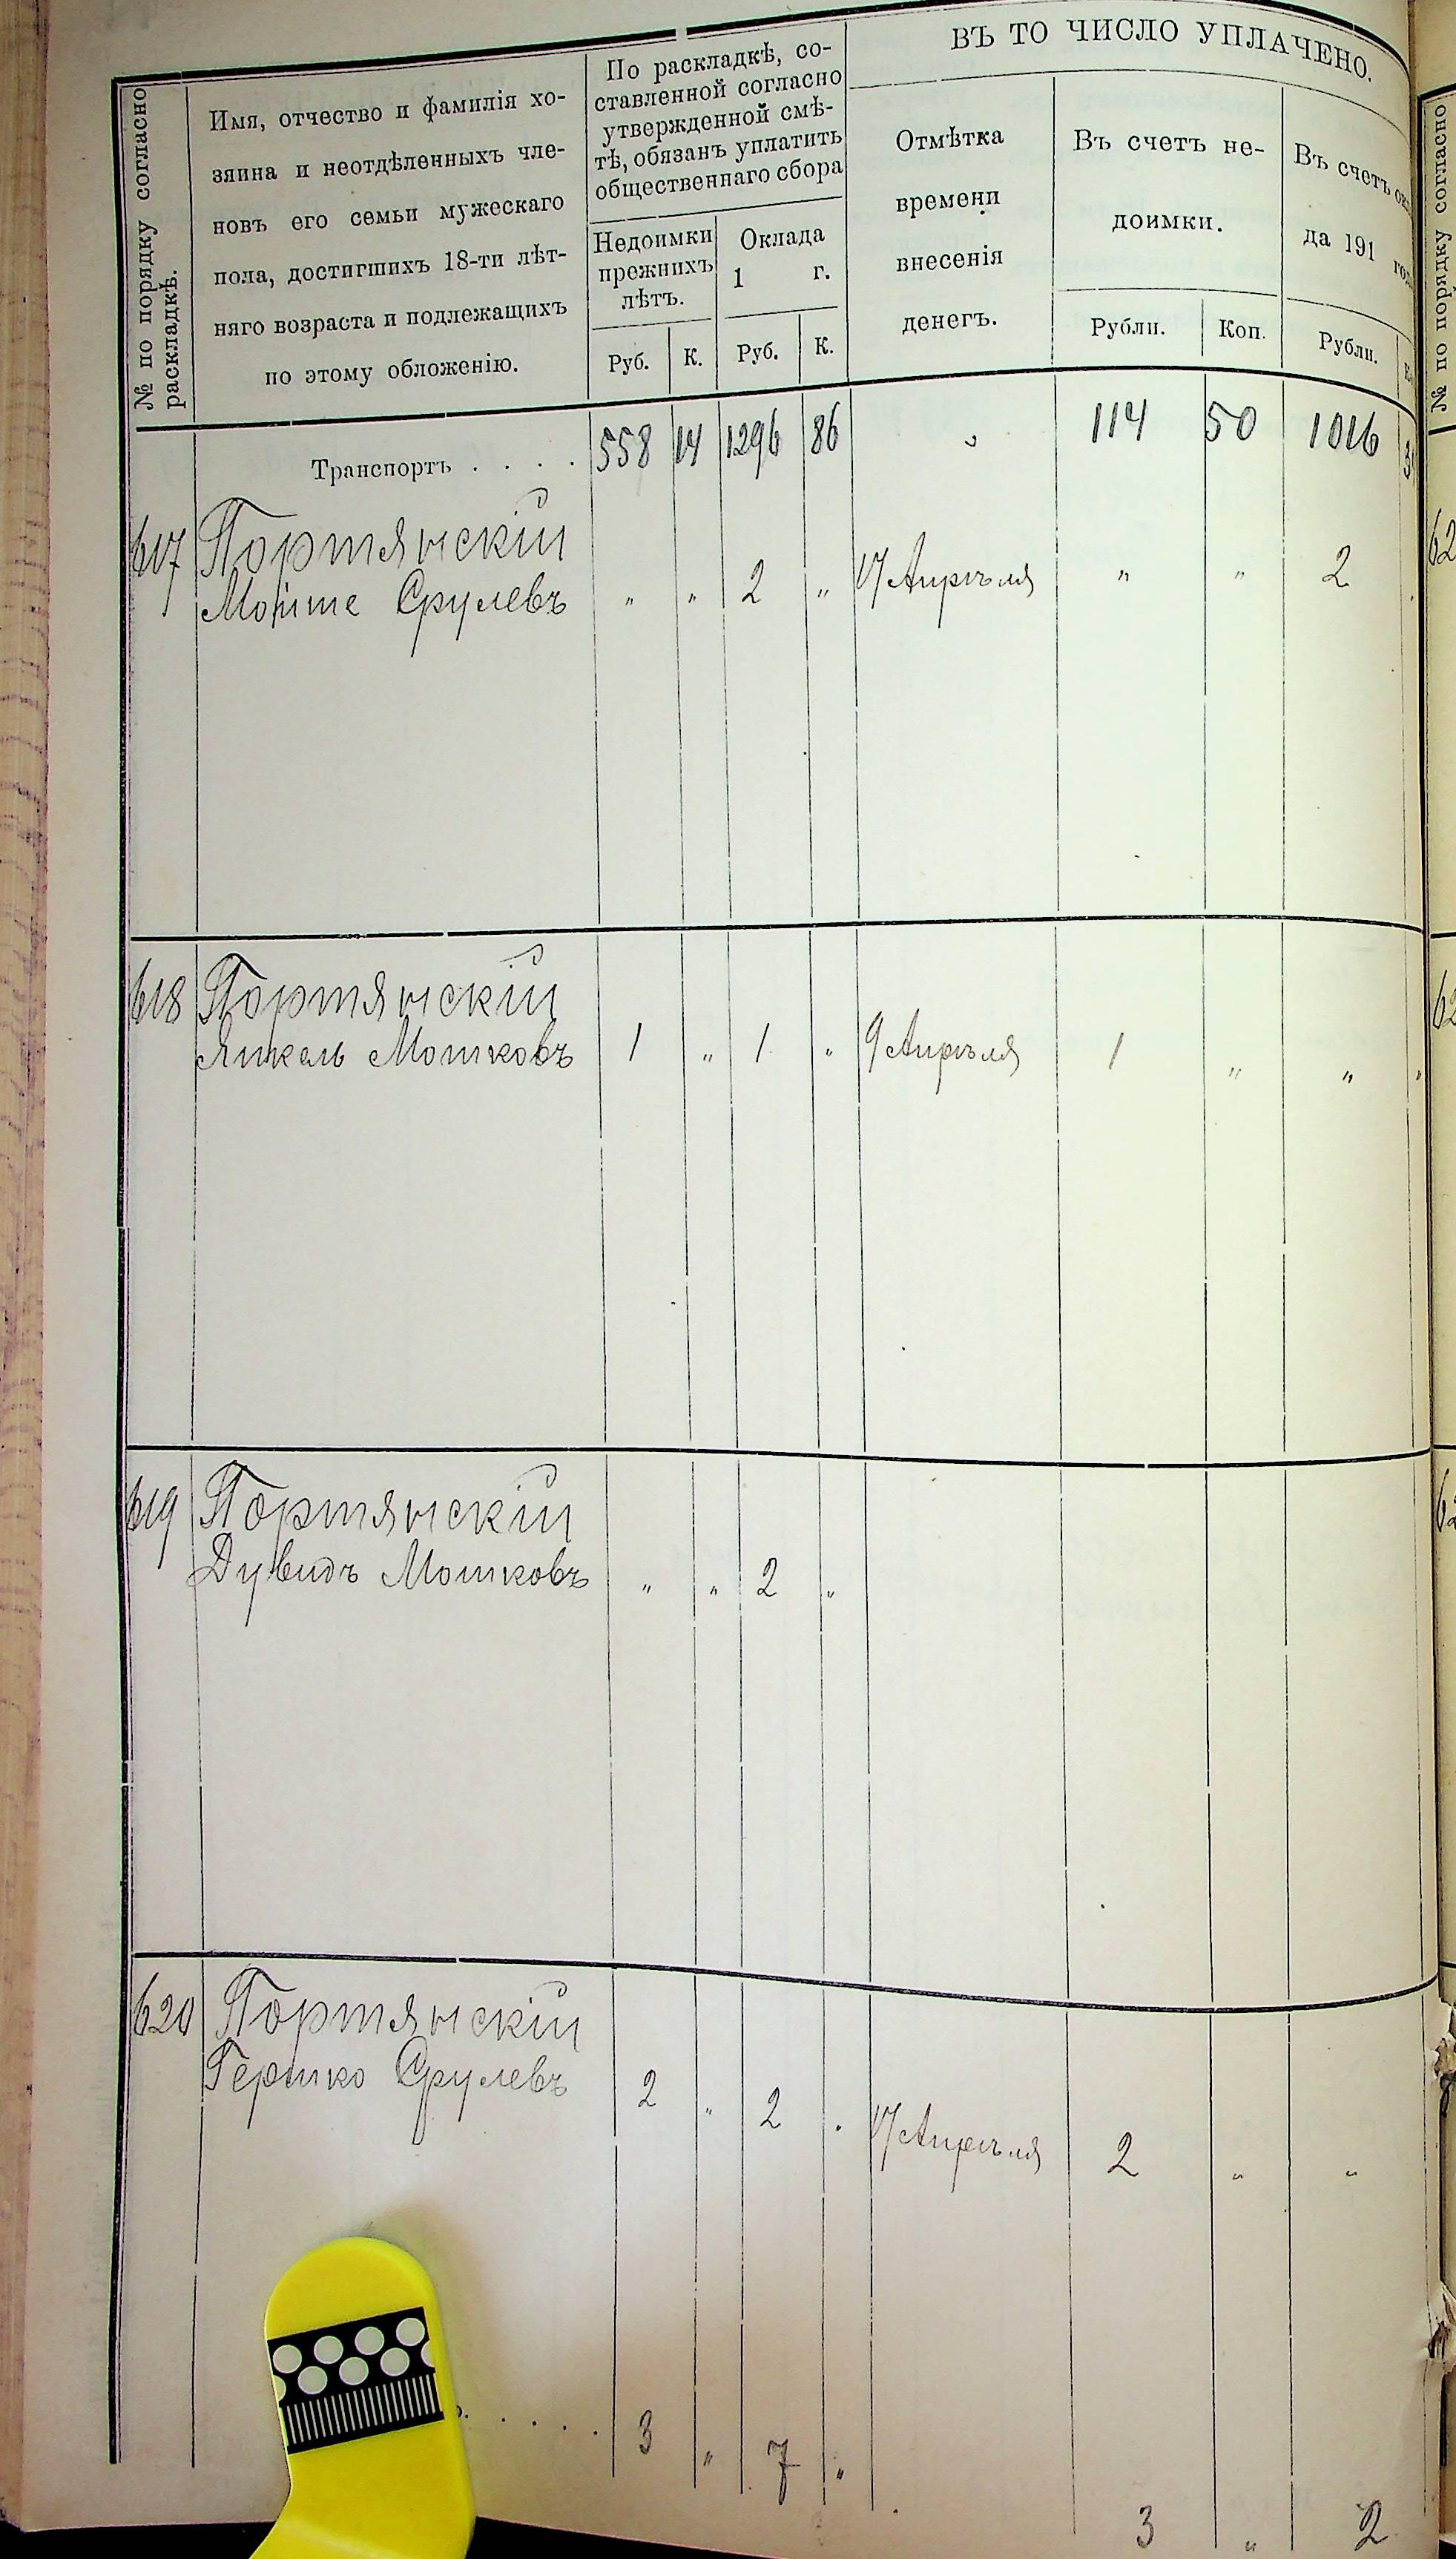 № по порядку согласно
раскладкѣ.
Имя, отчество и фамилія хо-
зяина и неотдѣленныхъ чле-
новъ его семьи мужескаго
пола, достигшихъ 18-ти лѣт-
няго возраста и подлежащихъ
по этому обложенію.
По раскладкѣ, со-
ставленной согласно
утвержденной смѣ-
тѣ, обязанъ уплатить
общественнаго сбора
Недоимки
прежнихъ
лѣтъ.
Оклада
1 г.
Руб. К. Руб. К.
ВЪ ТО ЧИСЛО УПЛАЧЕНО.
Отмѣтка
времени
внесенія
денегъ.
Въ счетъ не-
доимки.
Рубли. Коп.
Въ счетъ
да 191
Рубли.
Транспортъ . . . . 558 14 1296 86 " 114 50 1016
617 Портянскій
Мойше Срулевъ " " 2 " 17 Апрѣля " " 2
618 Портянскій
Янкель Мошковъ 1 " 1 " 9 Апрѣля 1 " "
619 Портянскій
Дувидъ Мошковъ " " 2 "
620 Портянскій
Гершко Срулевъ 2 " 2 " 17 Апрѣля 2 " "
3 " 7 "
3 " 2
№ по порядку согласно